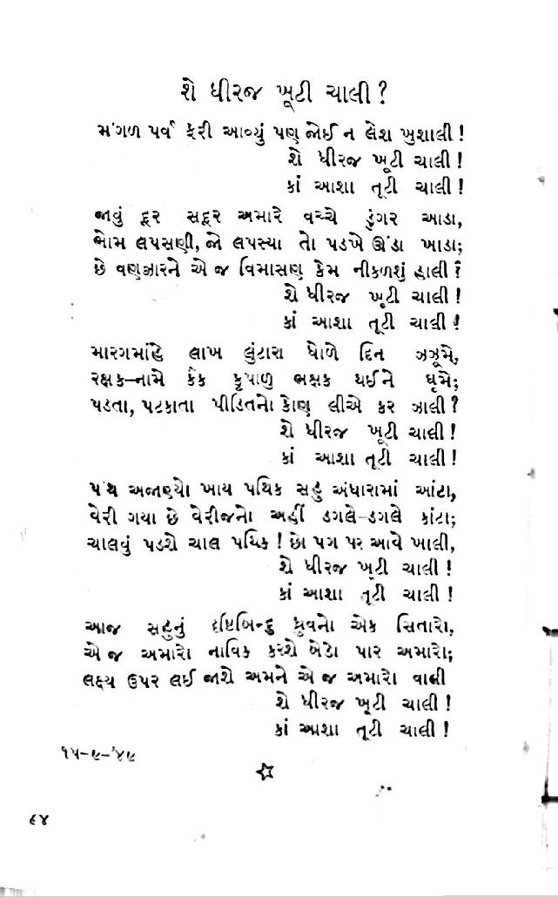 શે ધીરજ ખૂટી ચાલી?
મંગળ પર્વ ફરી આવ્યું પણ જોઈ ન લેશ ખુશાલી!
શે ધીરજ ખૂટી ચાલી!
કાં આશા તૂટી ચાલી!
જાવું દૂર સદૂર અમારે વચ્ચે ડુંગર આડા,
ભોમ લપસણી, જો લપસ્યા તો પડખે ઊંડા ખાડા;
છે વણઝારને એ જ વિમાસણ કેમ નીકળશું હાલી?
શે ધીરજ ખૂટી ચાલી!
કાં આશા તૂટી ચાલી!
મારગમાંહે લાખ લુંટારા ધોળે દિન ઝઝૂમે,
રક્ષક-નામે કૈંક કૃપાળુ ભક્ષક થઈને ઘૂમે;
પડતા, પટકાતા પીડિતનો કોણ લીએ કર ઝાલી?
શે ધીરજ ખૂટી ચાલી!
કાં આશા તૂટી ચાલી!
પંથ અજાણ્યો ખાય પથિક સહુ અંધારામાં આંટા,
વેરી ગયા છે વેરીજનો અહીં ડગલે-ડગલે કાંટા;
ચાલવું પડશે ચાલ પથિક! છો પગ પર આવે ખાલી,
શે ધીરજ ખૂટી ચાલી!
કાં આશા તૂટી ચાલી!
આજ સહુનું દૃષ્ટિબિન્દુ ધ્રુવનો એક સિતારો,
એ જ અમારો નાવિક કરશે બેડો પાર અમારો;
લક્ષ્ય ઉપર લઈ જાશે અમને એ જ અમારો વાલી
શે ધીરજ ખૂટી ચાલી!
કાં આશા તૂટી ચાલી!
૧૫-૯-'૪૯
૯૪